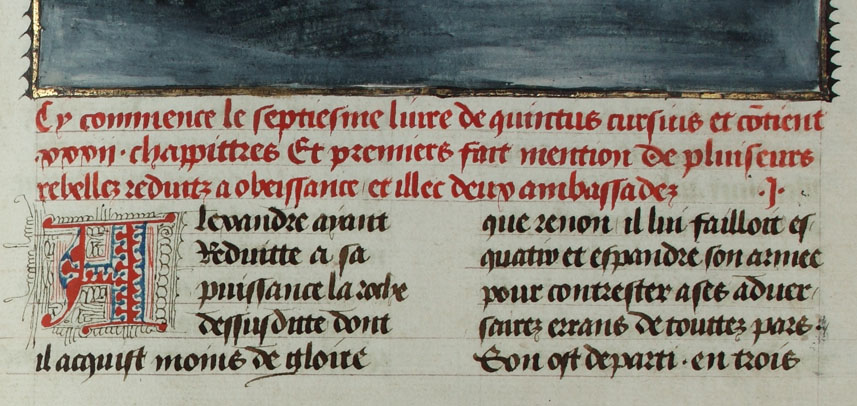 Cy commence le septiesme liure de quintus cursius et cõtient
xxxii · chappittres Et premiers fait mention de pluiseurs
rebellez reduitz a obeissance et illec deux ambassadez · J ·
Alexandre ayant
Reduitte a sa
puissance la roche
dessusditte dont
il acquist moins de gloire
que renon il lui failloit es
quatir et espandre son armee
pour contrester a ses aduer
sairez errans de touttez pars ·
Son ost departi · en trois